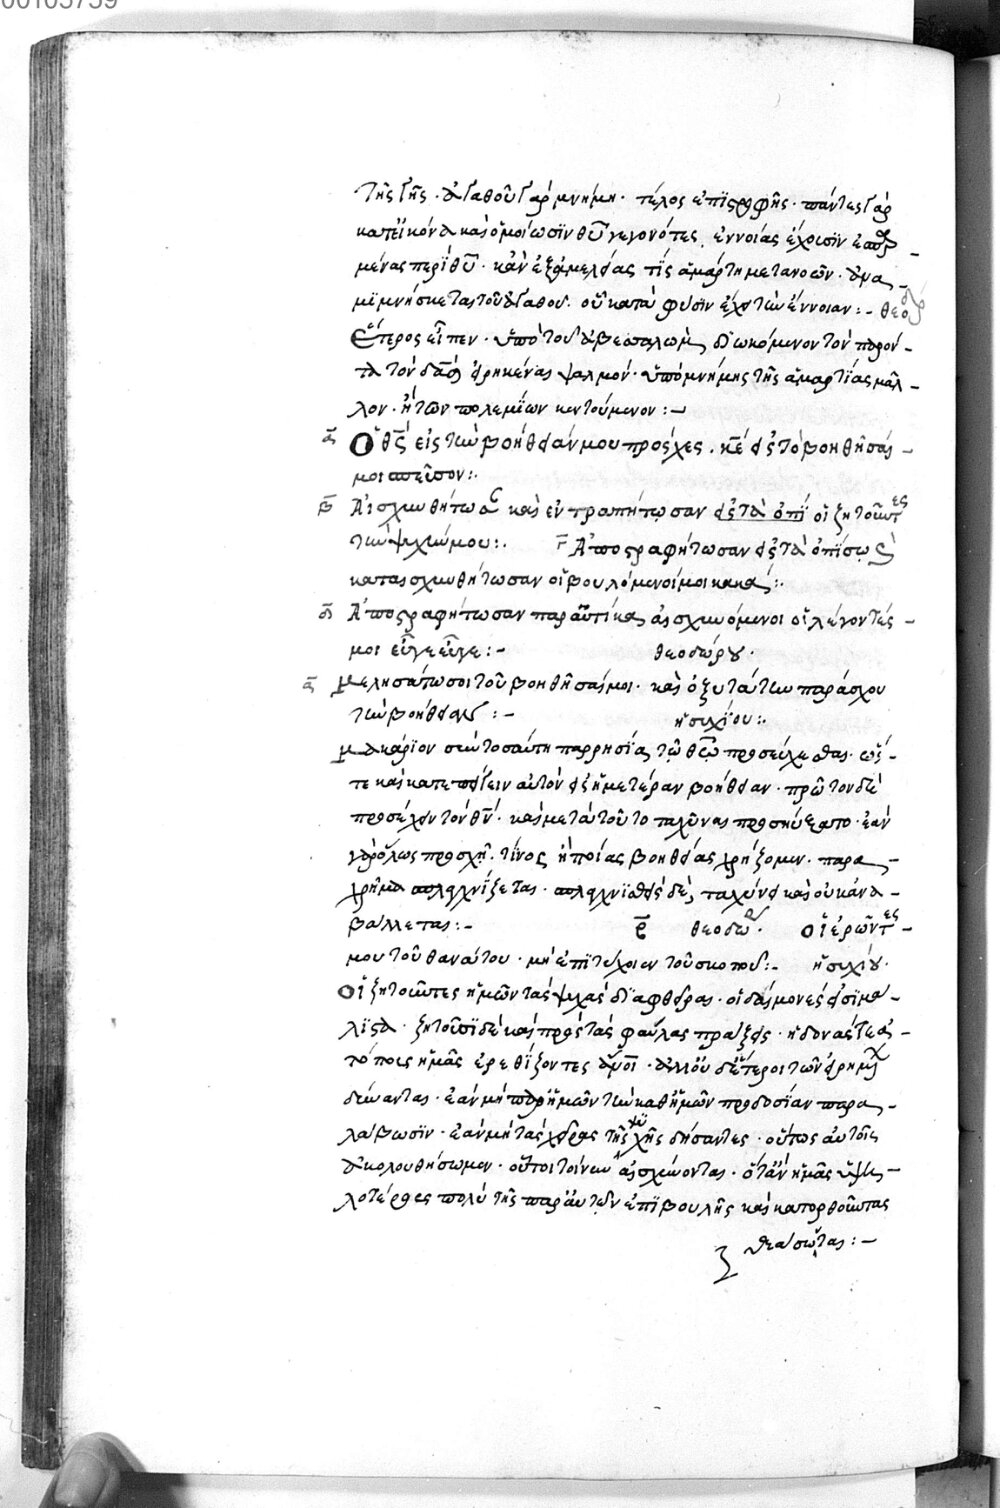 00105759
τῆς γῆς · ἀγαθοῦ γὰρ μνήμη · τέλος ἐπιστροφῆς · πάντες γὰρ
κατ' εἰκόνα καὶ ὁμοίωσιν θυ γεγονότες, ἐννοίας ἔχουσιν
μένας περὶ θυ · κἂν ἐξ ἀμελείας τις ἁμάρτη μετανοῶν ·
μιμνήσκεται τοῦ ἀγαθοῦ · οὗ κατὰ φύσιν ἔχει τὴν ἔννοιαν :-
Ἕτερος εἶπεν · ὑπὸ τοῦ ἀβεσαλὼμ διωκόμενον τὸν παρόν-
τα τὸν δαδ εἰρηκέναι ψαλμόν · ὑπὸ μνήμης τῆς ἁμαρτίας μᾶλ-
λον · ἢ τῶν πολεμίων κεντούμενον :-
α Ὁ θς εἰς τὴν βοήθειάν μου πρόσχες · κε εἰς τὸ βοηθῆσαί
μοι σπεῦσον :·
β Αἰσχυνθήτωσαν καὶ ἐντραπήτωσαν εἰς τὰ ὀπί οἱ ζητοῦντες
τὴν ψυχήν μου :· γ Ἀποστραφήτωσαν εἰς τὰ ὀπίσω καὶ
καταισχυνθήτωσαν οἱ βουλόμενοί μοι κακά :·
δ Ἀποστραφήτωσαν παραυτίκα αἰσχυνόμενοι οἱ λέγοντές
μοι εὖγε εὖγε :- θεοδώρου ·
α μελησάτω σοι τοῦ βοηθῆσαί μοι · καὶ ὀξυτάτην παράσχου
τὴν βοήθειαν :- ἡσυχίου :·
μακάριον σὺν τοσαύτη παρρησία τῶ θῶ προσεύχεσθαι · ὥς-
τε καὶ κατεπείγειν αὐτὸν εἰς ἡμετέραν βοήθειαν · πρῶτον δὲ
προσέχειν τὸν θν · καὶ μετὰ τοῦτο ταχῦναι προσηύξατο · ἐὰν
γὰρ ὅλως προσχῆ · τίνος ἢ ποίας βοηθείας χρήζομεν · παρα-
χρῆμα σπλαγχνίζεται · σπλαγχνισθεὶς δὲ, ταχύνει καὶ οὐκ ἀνα-
βάλλεται :- β θεοδώ · οἱ ἐρῶντες
μου τοῦ θανάτου · μὴ ἐπιτύχοιεν τοῦ σκοποῦ :- ἡσυχίου ·
οἱ ζητοῦντες ἡμῶν τὰς ψυχὰς διαφθεῖραι · οἱ δαίμονές εἰσι μά-
λιστα · ζητοῦσι δὲ καὶ πρὸς τὰς φαύλας πράξεις ·
τόποις ἡμᾶς ἐρεθίζοντες
δύνανται · ἐὰν μὴ παρ' ἡμῶν τὴν καθ' ἡμῶν προδοσίαν παρα-
λάβωσιν · ἐὰν μὴ τὰς χεῖρας τῆς ψυχῆς δήσαντες · οὕτως αὐτοῖς
ἀκολουθήσωμεν · οὗτοι τοίνυν αἰσχύνονται · ὅταν ἡμᾶς ὑψη-
λοτέρους πολὺ τῆς παρ' αὐτῶν ἐπιβουλῆς καὶ κατορθοῦντας
θεάσωνται :-